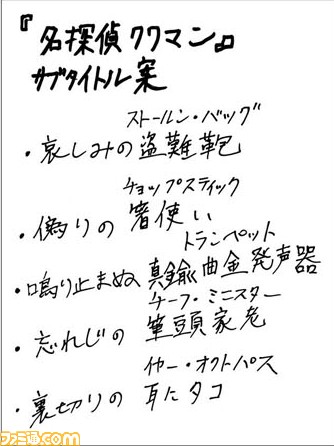 『名探偵クワマン』
サブタイトル案
ストールン・バッグ
・哀しみの盗難鞄
チョップスティック
・偽りの箸使い
トランペット
・鳴り止まぬ真鍮曲金発声器
チーフ・ミニスター
・忘れじの筆頭家老
イヤー・オクトパス
・裏切りの耳にタコ
ファミ通.com